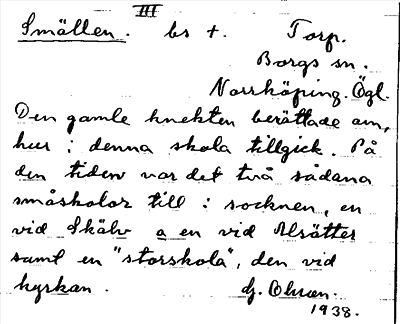 III
Smällen. bs t. Torp.
Borgs sn.
Norrköping. Ögl.
Den gamle knekten berättade om,
hur i denna skola tillgick. På
den tiden var det två sådana
småskolor till i socknen, en
vid Skälv a en vid Älsätter
samt en "storskola", den vid
kyrkan. dj. Olsson.
1938.